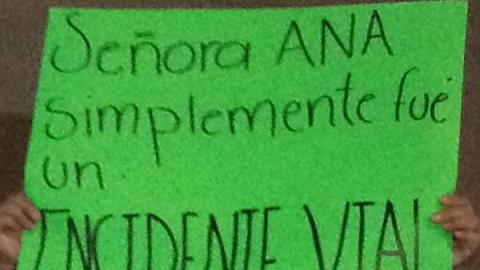 Señora ANA
simplemente fué
un
INCIDENTE VIAL